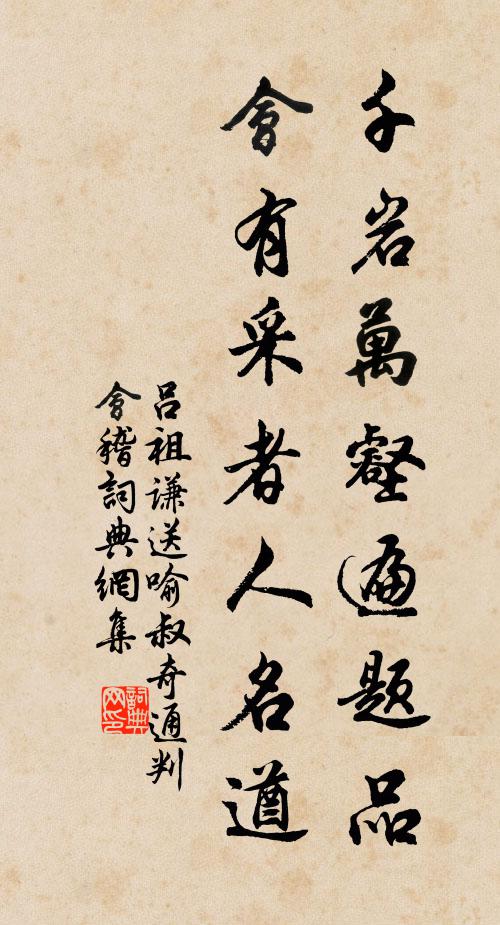 千岩萬壑遍題品
會有采者人名遒
呂祖謙送喻叔奇通判
會稽詞典網集
詞典
网印